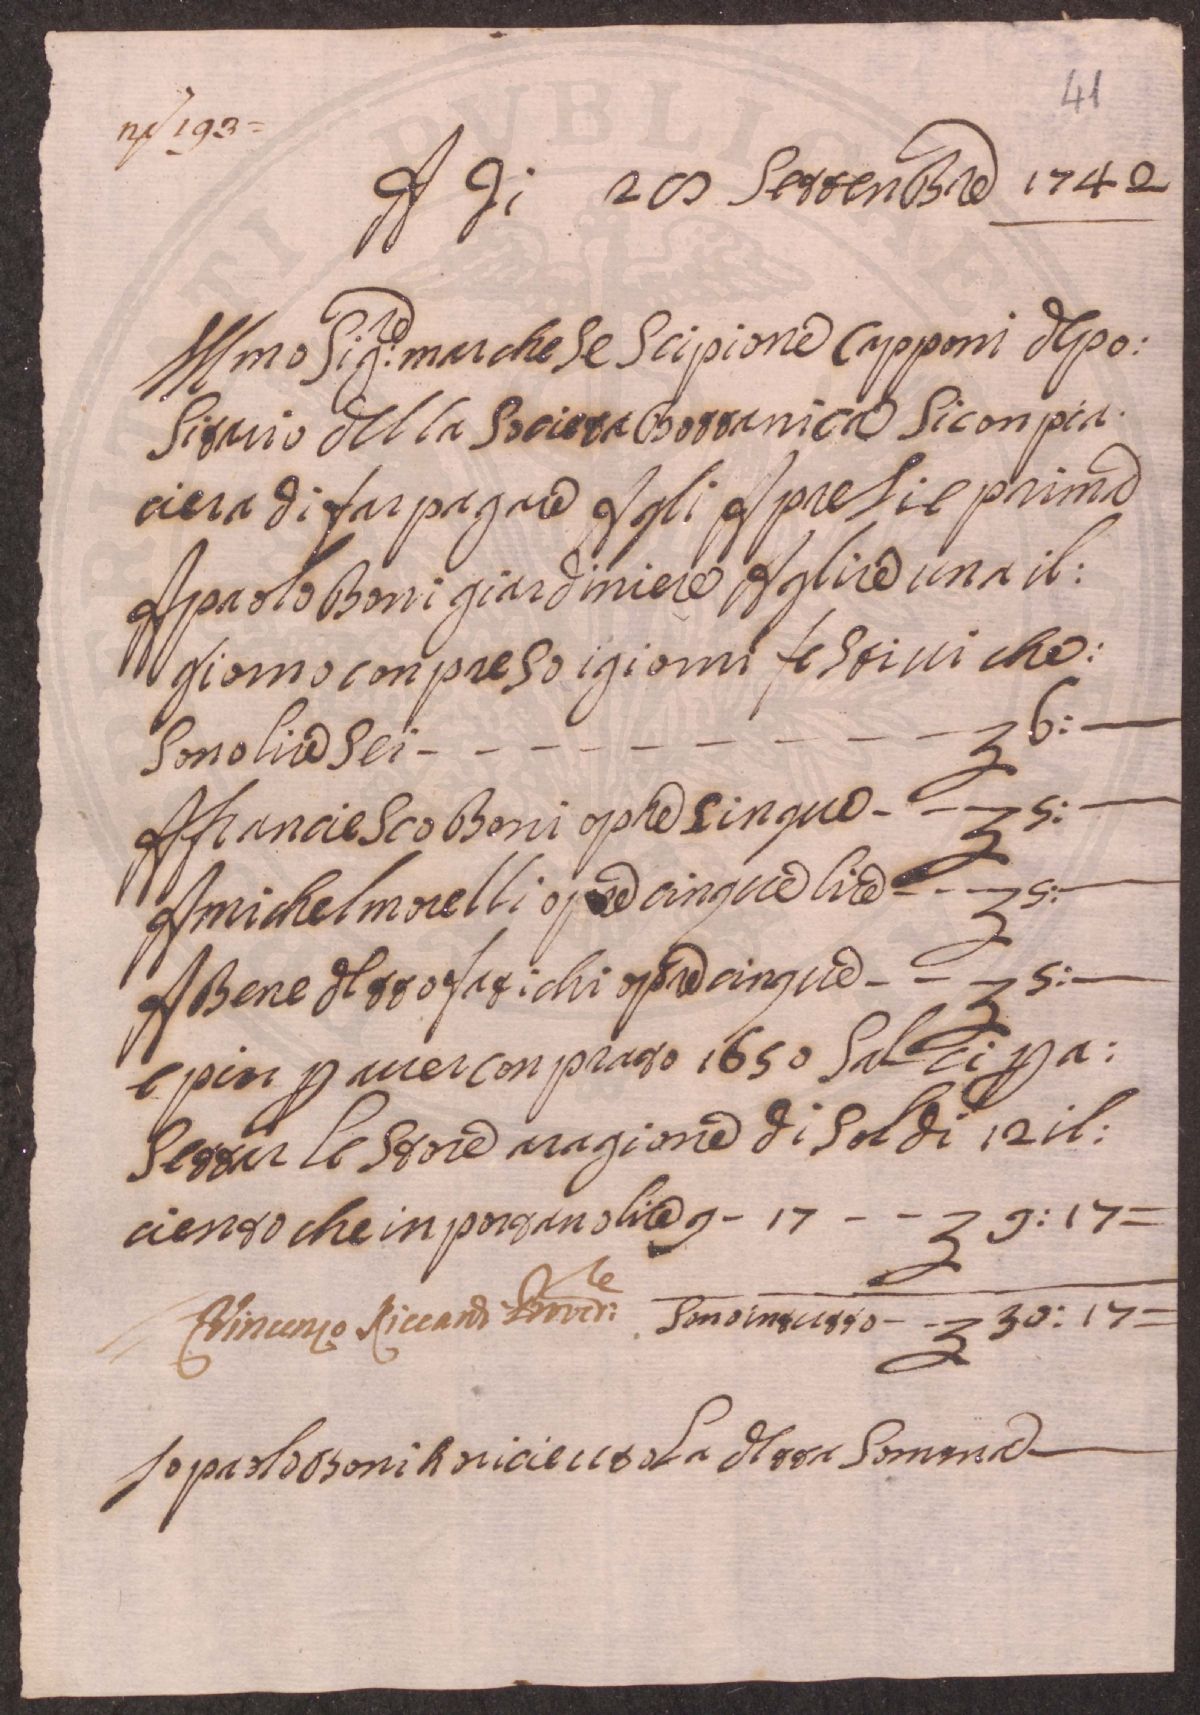 41
n° 193=
A Di 28 Settenbre 1742
Illmo Sigre: marchese Scipione Capponi depo:
sitario della Societa Bottanica si conpia
ciera di far pagare Agli Apresi e prima
A paolo Boni giardiniere A lire una il:
giorno conpreso i giorni festiui che:
sono lire sei - - - - - - - - - - 6: —
A franciesco Boni opre cinque - - - 5: —
A michel morelli opre cinque lire - - - 5: —
A Benedetto fatichi opre cinque - - - 5: —
e piu p auer conprato 1650 Salci pa:
settar le store a ragione di soldi 12 il:
ciento che inportano lire 9 - 17 - - - 9: 17=
Vincenzo Riccardi Provre: Sono in tutto - - 30: 17=
Io paolo Boni ho riceuto La detta Somma —
PVBLI